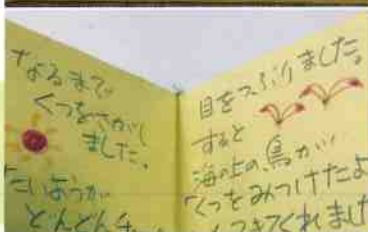 なるまで
くつをさがし
ました。
たいようが
どんどん
目をつぶりました。
すると
海の上の鳥が
くつをみつけたよ
きてくれまし